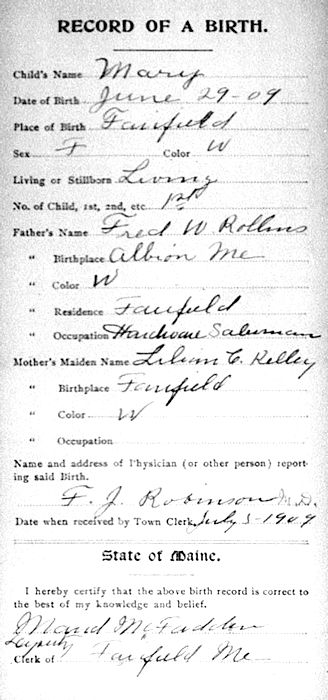 RECORD OF A BIRTH.
Child's Name Mary
Date of Birth June 29-09
Place of Birth Fairfield
Sex F Color W
Living or Stillborn Living
No. of Child, 1st, 2nd, etc. 1st
Father's Name Fred W Rollins
" Birthplace Albion Me
" Color W
" Residence Fairfield
" Occupation Hardware Salesman
Mother's Maiden Name Lilian C. Kelley
" Birthplace Fairfield
" Color W
" Occupation
Name and address of Physician (or other person) report-
ing said Birth.
F. J. Robinson M.D.
Date when received by Town Clerk, July 3-1909
State of Maine.
I hereby certify that the above birth record is correct to
the best of my knowledge and belief.
Maud McFadden
Deputy
Clerk of Fairfield Me